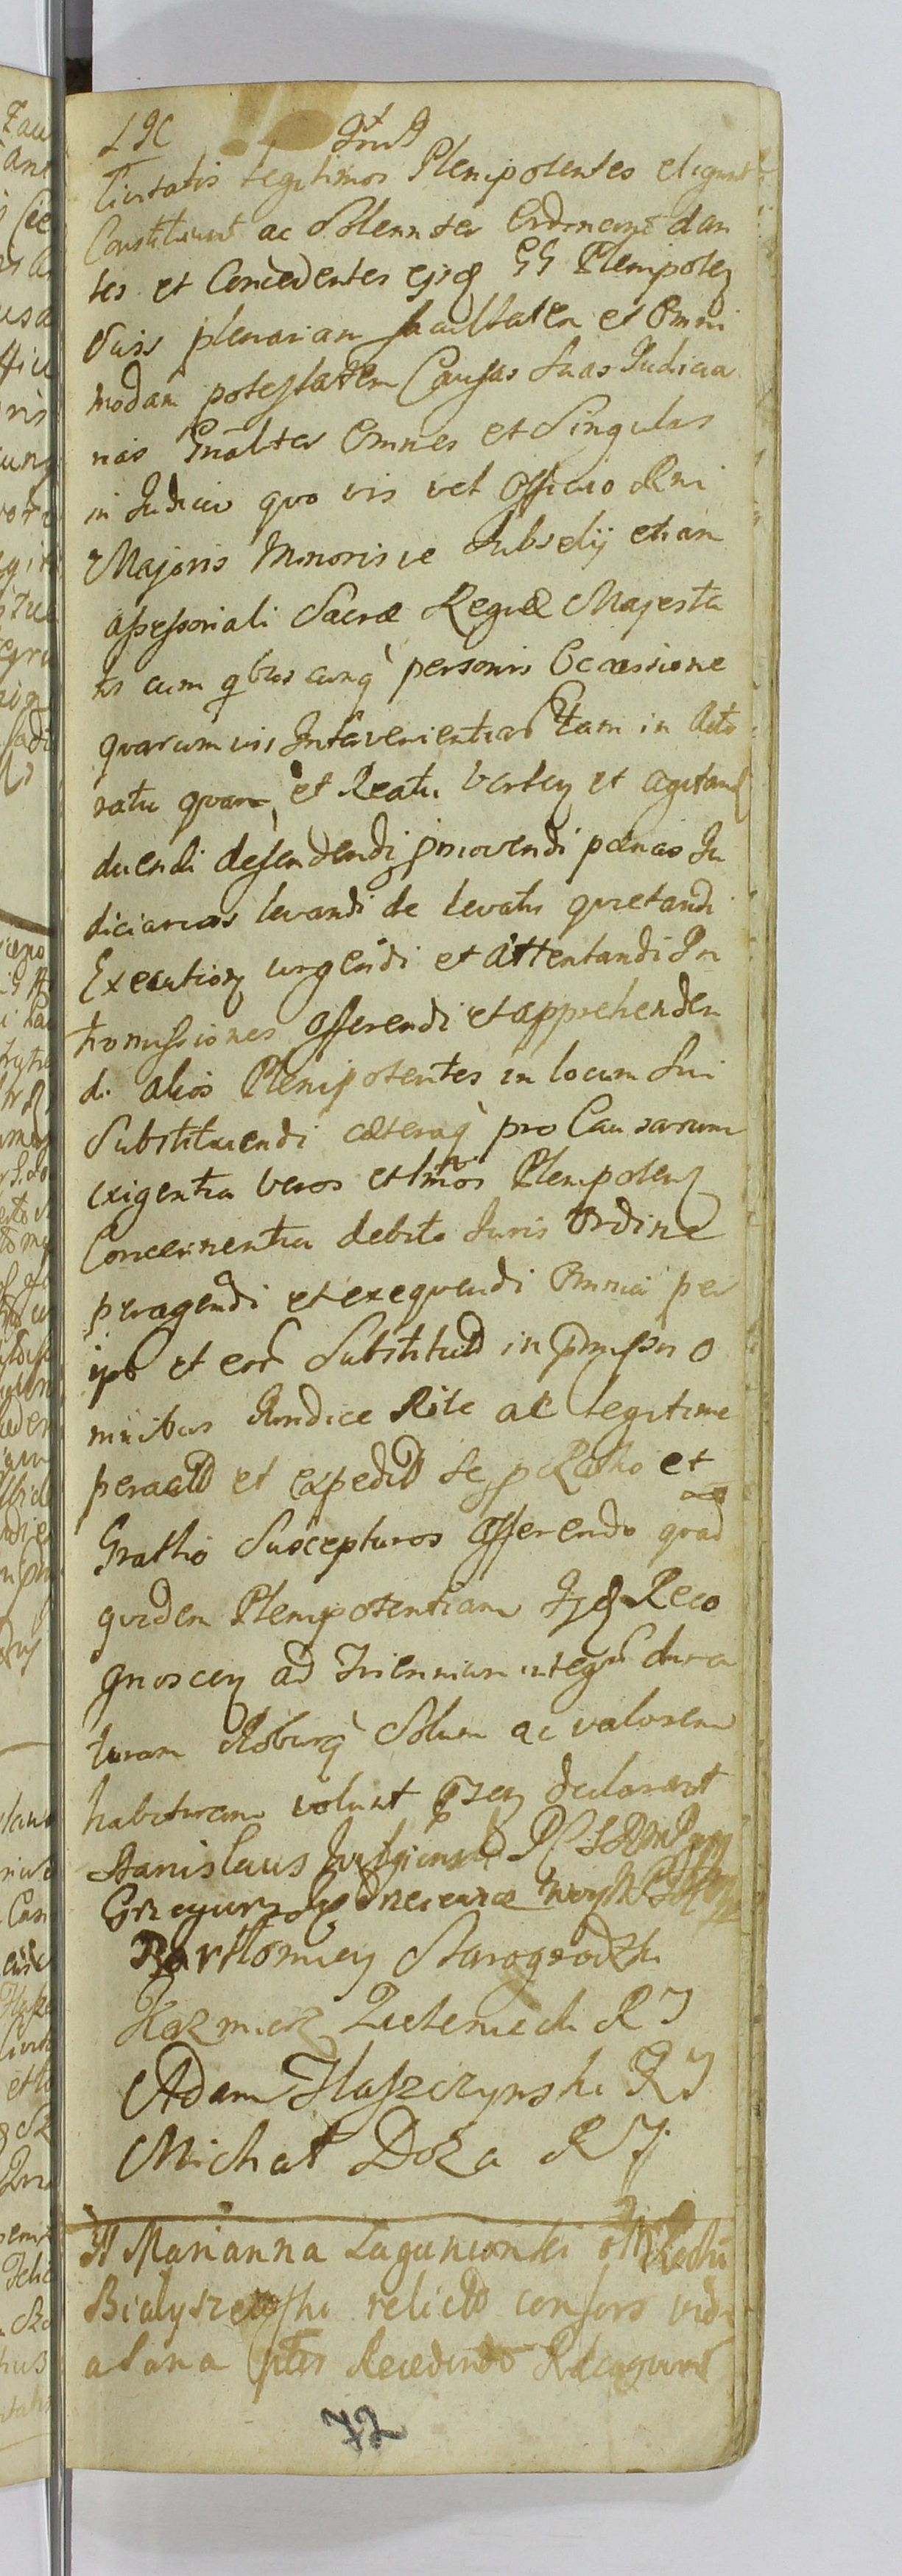 Civitatis legitimos Plenipotentes eligunt
Constituunt ac Solennter Ordinant dan
tes et Concedentes ejsq GG Plenipoten
suis plenariam facultatem et Omni
modam potestatem Causas Suas Judicia
rias Gnalter Omnes et Singulas
in Judicio quo vis vel Officio Rni
Majoris Minoris ve Subselij etiam
assessoriali Sacræ Regiæ Majesta
tis cum qbus cunq personis Occassione
quarumvis Intervenientiar tam in Acto
ratu quam et Reatu verten et agitand
ducendi defendendi promovendi pænas Ju
diciarias levandi de levatis quietandi
Execution urgendi et attentandi In
tromissiones offerendi et apprehenden
di alios Plenipotentes in locum Sui
Substituendi cæteraq pro Causarum
exigentia veros et ltmos Plenipoten
Concernentia debito Juris Ordine
peragendi et exequendi Omnia per
ips et eor Substitut in pmissis o
mnibus Juridice Rite ac legitime
peract et expedit se p Ratho et
Gratho Suscepturos offerendo quod
quidem Plenipotentiam Reco
gnoscen ad Triennium integr dura
turam Roburq Solum ac valorem
habituram volunt declarant
Stanislaus
Grzegurz
Bartłomiey Starogrodzki
Kazmierz R J
Adam Haszczynski R J
Michał Doza R J
Marianna Lagunionki
relict consors
a Sana Recedendo
72